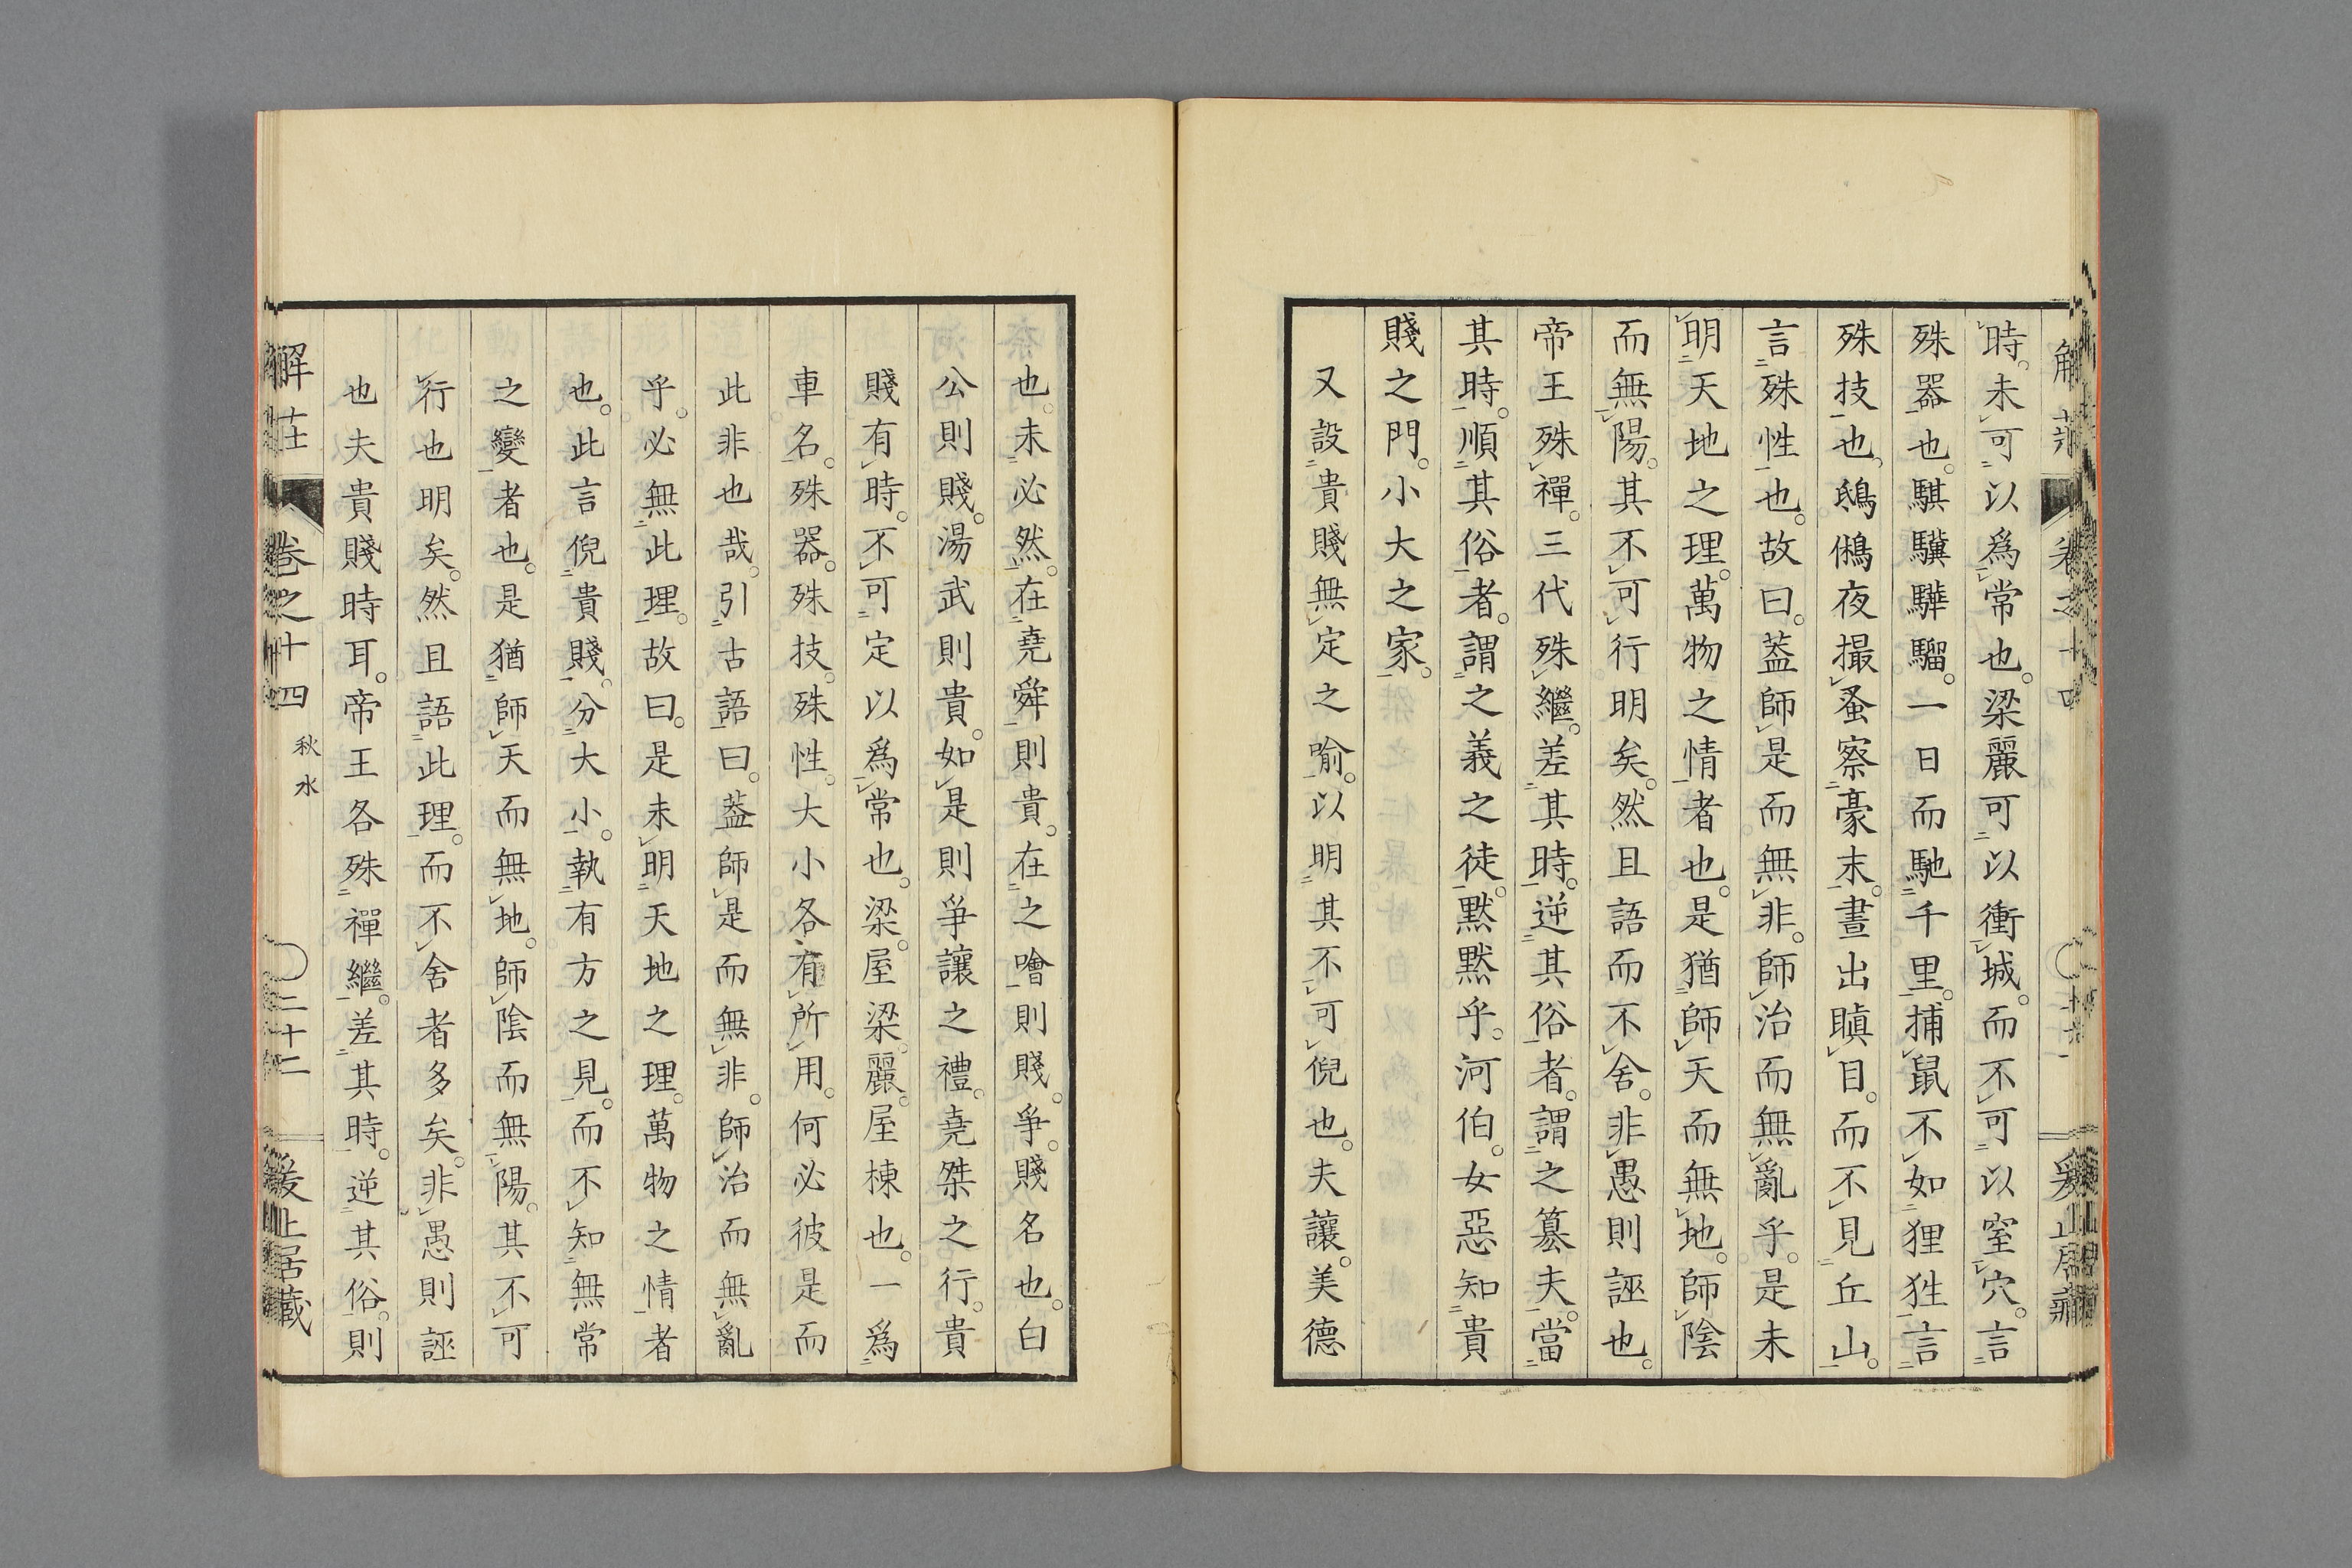 時。未可以爲常也。梁麗可以衝城。而不可以窒穴。言
殊器也。騏驥驊騮。一日而馳千里。捕鼠不如狸狌。言
殊技也。鴟鵂夜撮蚤察豪末。晝出瞋目。而不見丘山。
言殊性也。故曰。蓋師是而無非。師治而無亂乎。是未
明天地之理。萬物之情者也。是猶師天而無地。師陰
而無陽。其不可行明矣。然且語而不舍。非愚則誣也。
帝王殊禪。三代殊繼。差其時。逆其俗者。謂之篡夫。當
其時。順其俗者。謂之義之徒。默默乎。河伯。女惡知貴
賤之門。小大之家。
又設貴賤無定之喻。以明其不可倪也。夫讓。美德
也。未必然。在堯舜則貴。在之噲則賤。爭。賤名也。白
公則賤。湯武則貴。如是則爭讓之禮。堯桀之行。貴
賤有時。不可定以爲常也。梁。屋梁。麗。屋棟也。一爲
車名。殊器。殊技。殊性。大小各有所用。何必彼是而
此非也哉。引古語曰。蓋師是而無非。師治而無亂
乎。必無此理。故曰。是未明天地之理。萬物之情者
也。此言倪貴賤。分大小。執有方之見。而不知無常
之變者也。是猶師天而無地。師陰而無陽。其不可
行也明矣。然且語此理。而不舍者多矣。非愚則誣
也夫貴賤時耳。帝王各殊禪繼。差其時。逆其俗。則
解莊
卷之十四
秋水
二十二
爰止居藏